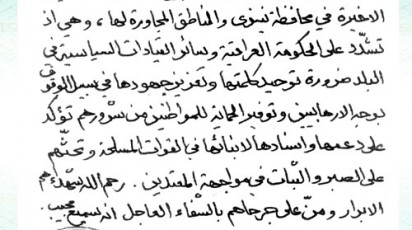 الاخيرة في محافظة نينوى والمناطق المجاورة لها ، وهي اذ
تشدّد على الحكومة العراقية وسائر القيادات السياسية في
البلد ضرورة توحيد كلمتها وتعزيز جهودها في سبيل الوقوف
بوجه الارهابيين وتوفير الحماية للمواطنين من شرورهم تؤكد
على دعمها واسنادها لابنائها في القوات المسلحة وتحثّهم
على الصبر والثبات في مواجهة المعتدين . رحم الله شهداءهم
الابرار ومنّ على جرحاهم بالشفاء العاجل انه سميع مجيب .